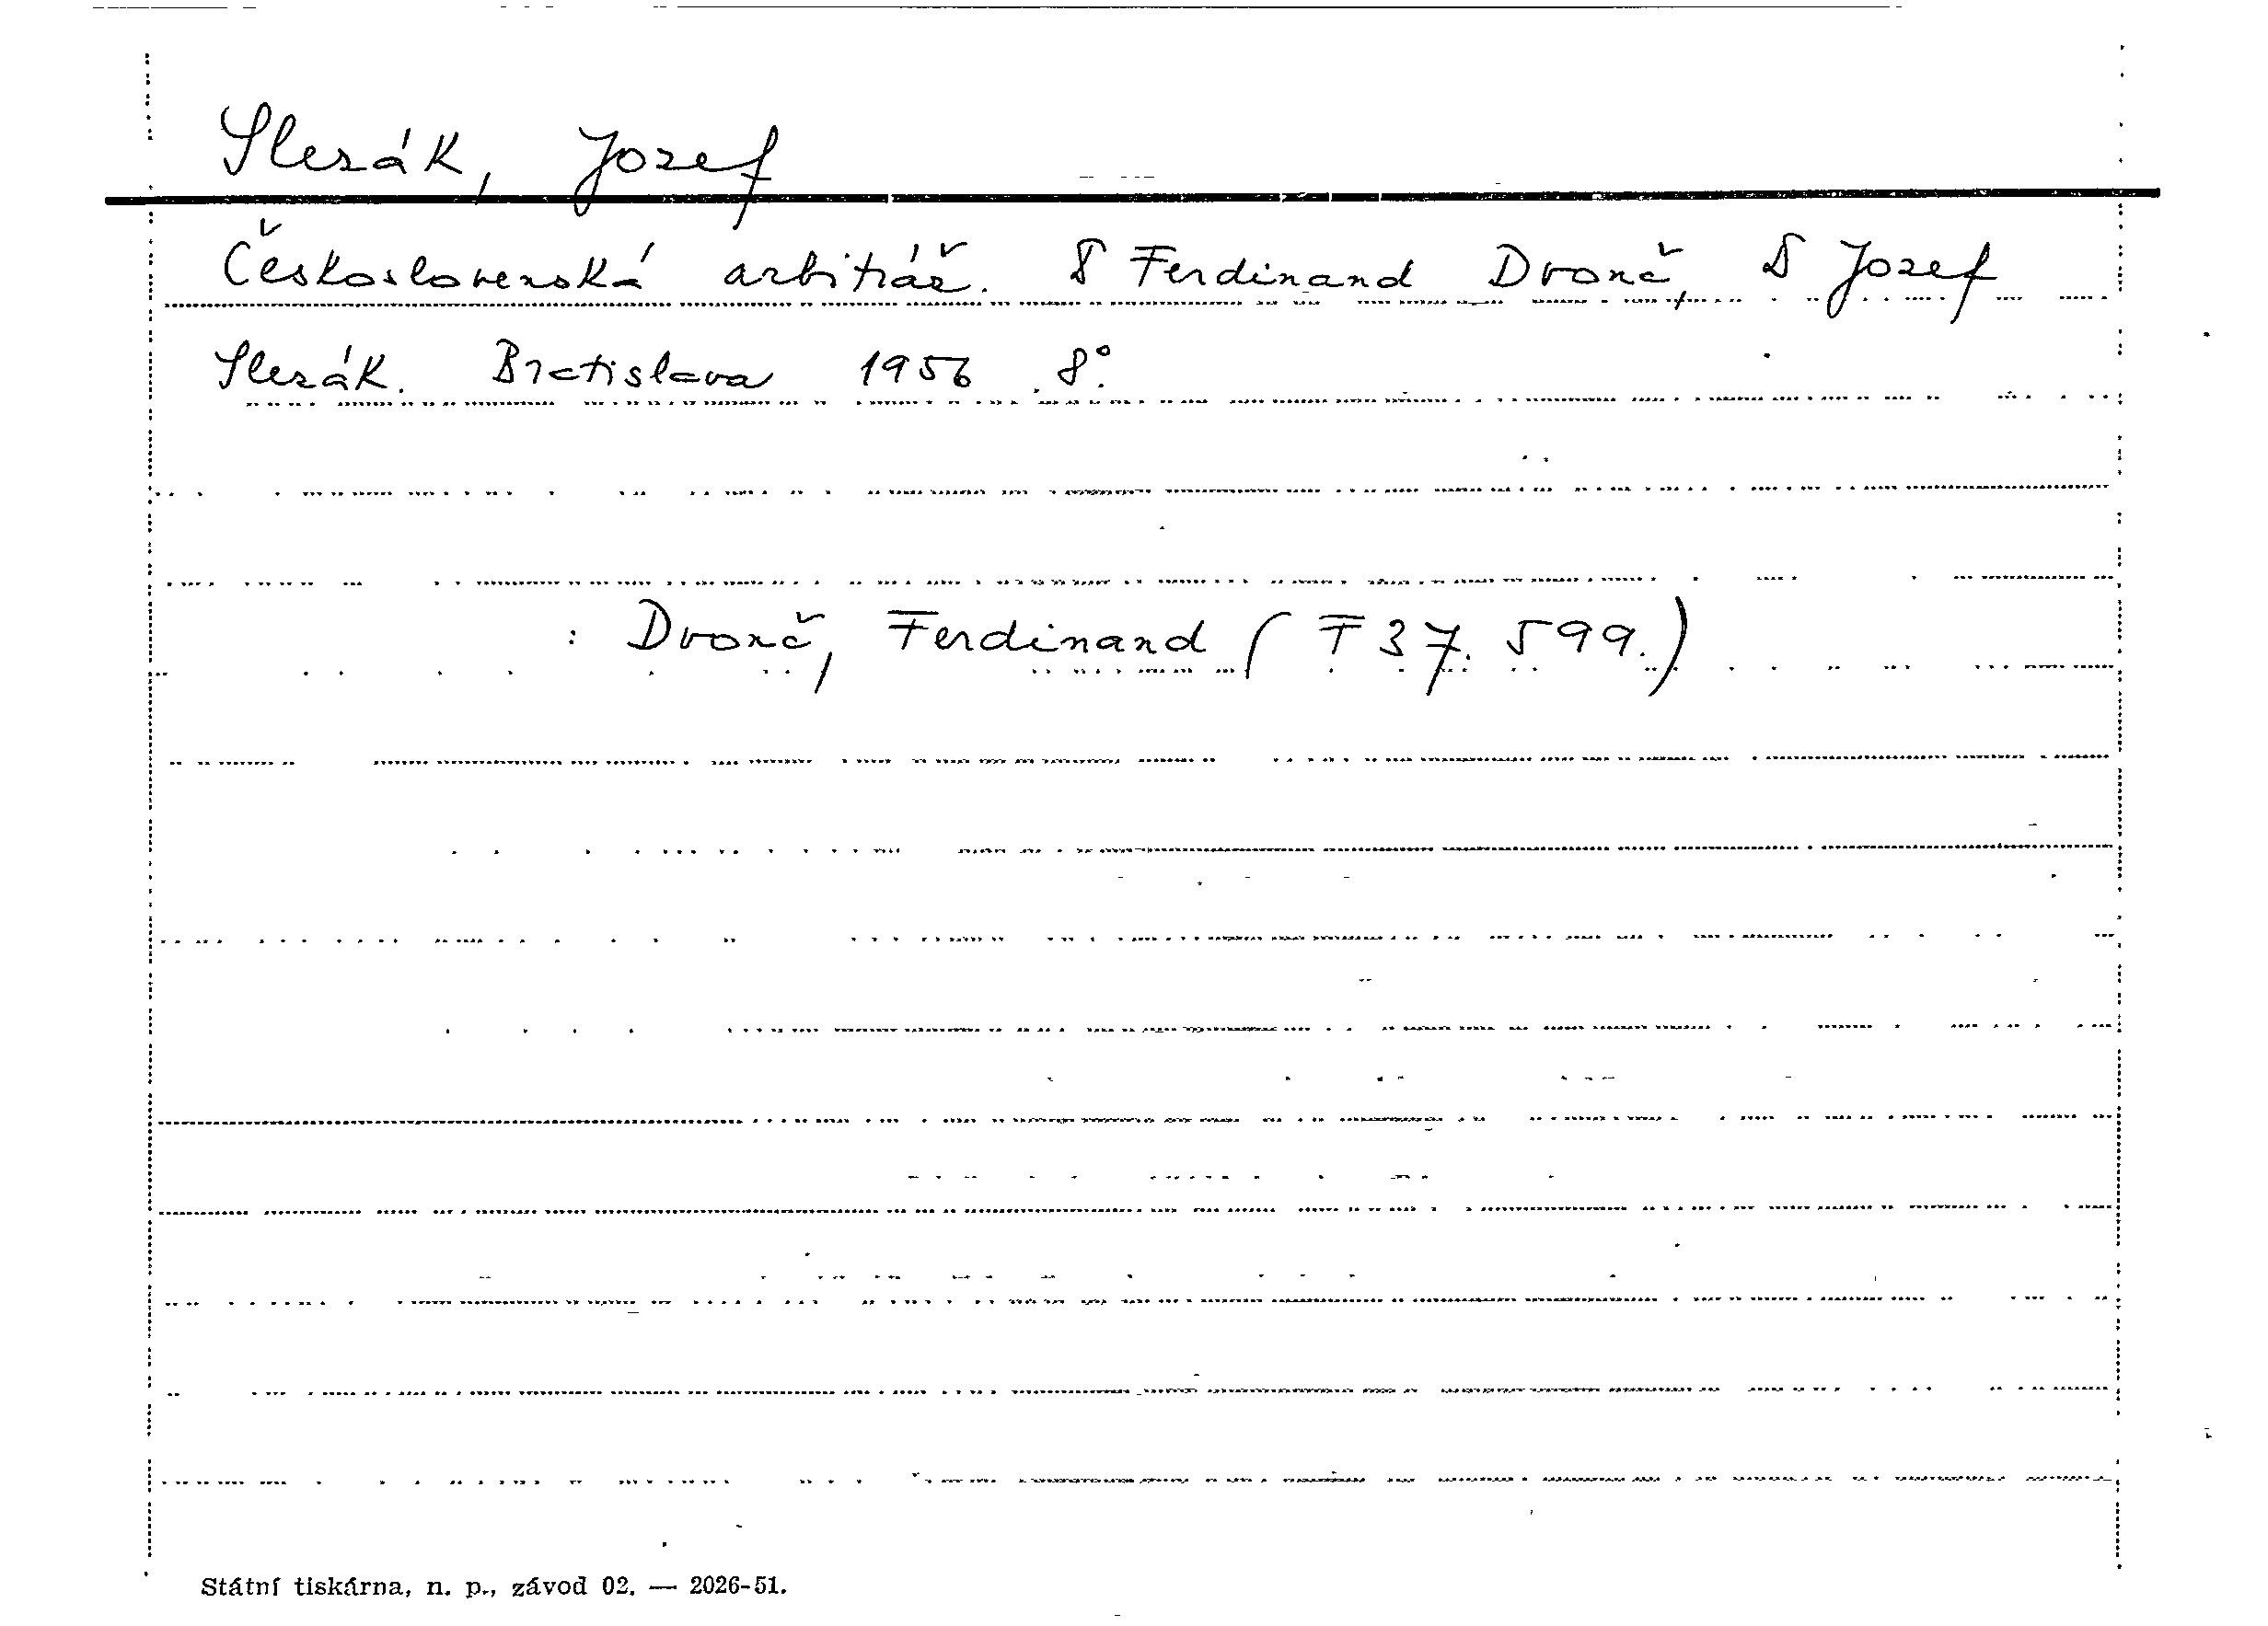 Slezák, Jozef
Československá arbitráž. Ferdinand Dvonč, Jozef
Slezák. Bratislava 1956 8°.
: Dvonč, Ferdinand (F 37.599.)
Státní tiskárna, n. p., závod 02. — 2026-51.